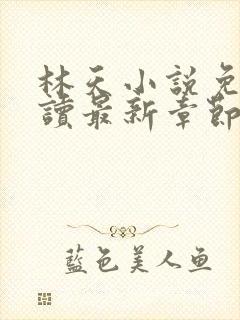 林天小說免
讀最新章節
藍色美人鱼